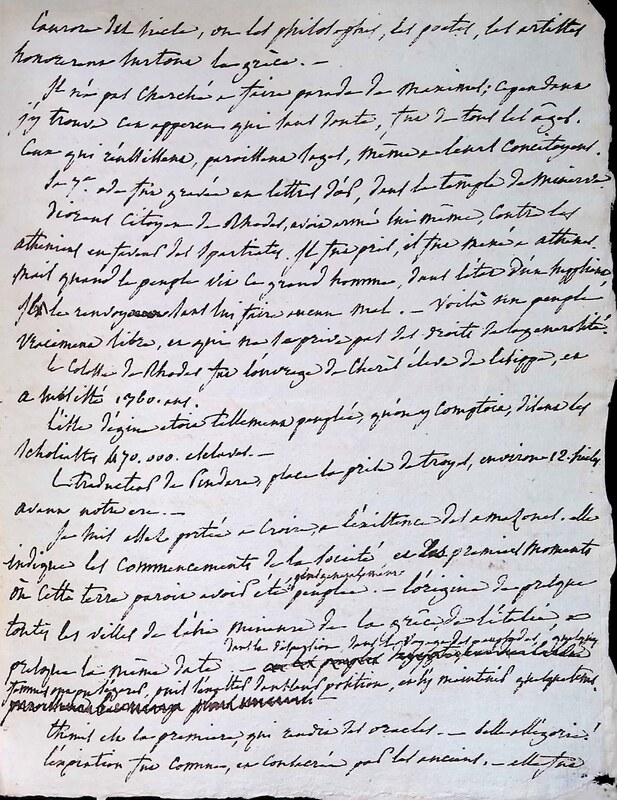 l'aurore des siecle, ou les philosophes, les poetes, les artistes
honorerent surtout la grèce. —
Il n'a pas cherché a faire parade de maximes; cependant
j'y trouve cet qui sans doute, fut de tous les âges.
Ceux qui réussissent, paroissent sages, même a leurs concitoyens.
Sa 7.e ode fut gravée en lettres d'or, dans le temple de Minerve
citoyen de Rhodes, avoit armé lui même, contre les
atheniens en faveur des spartiates. Il fut pris, et fut mené a athenes.
Mais quand le peuple vit ce grand homme, dans l'état d'un suppliant
il le renvoya sans lui faire aucun mal. — voilà un peuple
vraiment libre, et qui ne se prive pas des droits de la generosité.
le Colosse de Rhodes fut l'ouvrage de Charès élève de lisippe, et
a subsisté 1360. ans.
l'isle d'égine étoit tellement peuplée, qu'on y comptoit, disent les
scholiastes 470.000. esclaves. —
le traducteur de Pindare, place la prise de troye, environ 12. siecles
avant notre ere. —
Je suis assez portée a croire, a l'existence des amazones. elle
indique les commencements de la société et les premiers moments
où cette terre paroit avoir été généralement peuplée. — l'origine de presque
toutes les villes de l'asie mineure de la grèce de l'italie, a
presque la même date —
dans le voyage des peuplades, quelques
femmes ont pu puis position, et s'y maintenir quelque tems.
themis est la premiere, qui rendit des oracles. — belle allégorie!
l'expiation fut connue, et consacrée par les anciens. — elle fut